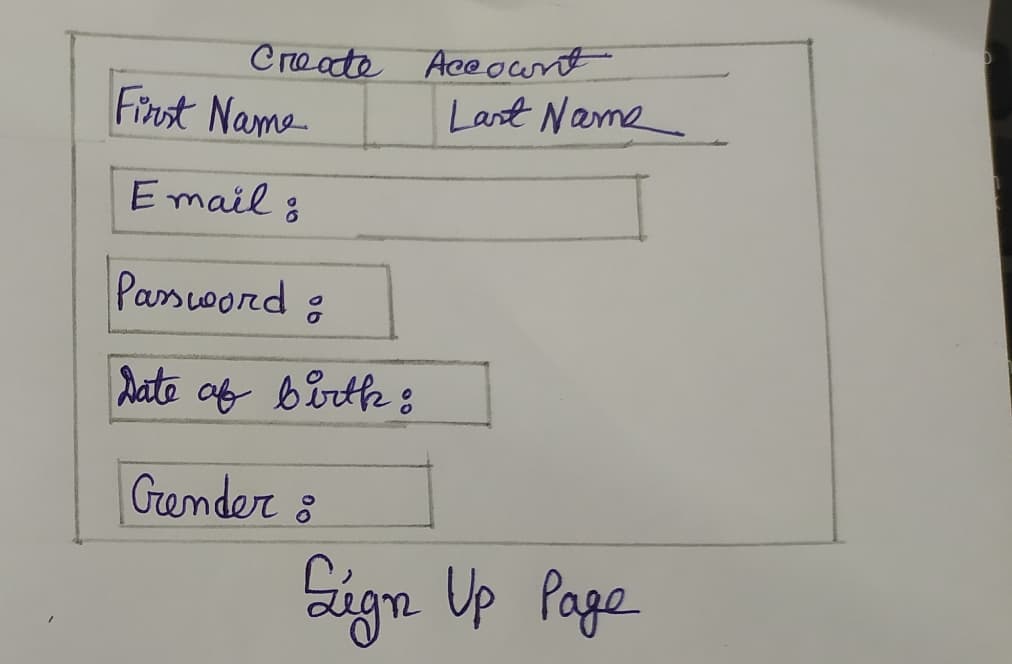 Create Account
First Name Last Name
Email :
Password :
Date of birth :
Gender :
Sign Up Page